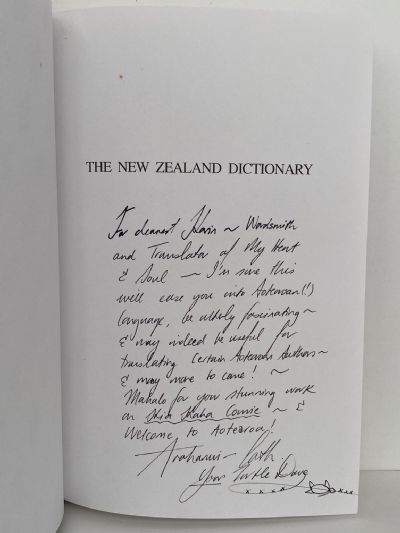 THE NEW ZEALAND DICTIONARY
For dearest Karin ~ Wordsmith
and Translator of My Heart
& Soul — I'm sure this
will ease you into Aotearoan(!)
language, be utterly fascinating ~
& may indeed be useful for
translating Certain Aotearoan Authors ~
& may more to come! ~
Mahalo for your stunning work
on Skia Comic ~ &
Welcome to Aotearoa!
Arohanui
Your Turtle Dove
x x x x x x x